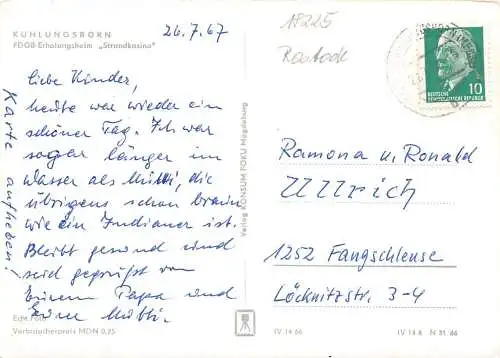 KÜHLUNGSBORN
FDGB-Erholungsheim „Strandkasino"
26.7.67
Liebe Kinder,
heute war wieder ein
schöner Tag. Ich war
sogar länger im
Wasser als Mutti, die
übrigens schon braun
wie ein Indianer ist.
Bleibt gesund und
seid gegrüßt von
Eurem Papa und
Eurer Mutti.
Karte aufheben!
Echt Foto
Verbraucherpreis MDN 0,25
Verlag KONSUM FOKU Magdeburg
18225
Rostock
10
DEUTSCHE
DEMOKRATISCHE REPUBLIK
Ramona u. Ronald
Ullrich
1252 Fangschleuse
Löcknitzstr. 3-4
IV 14 66
IV 14 6 N 31/66